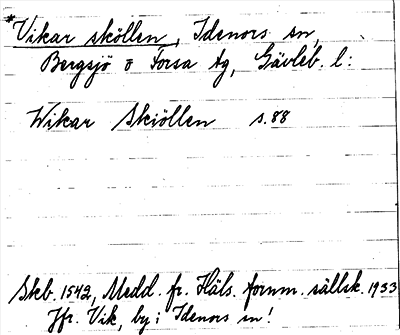 *Vikar sköllen, Idenors sn,
Bergsjö o Forsa tg, Gävleb. l:
Wikar Skiöllen s. 88
Skb. 1542, Medd. fr. Häls. fornm. sällsk. 1933
Jfr. Vik, by i Idenors sn!